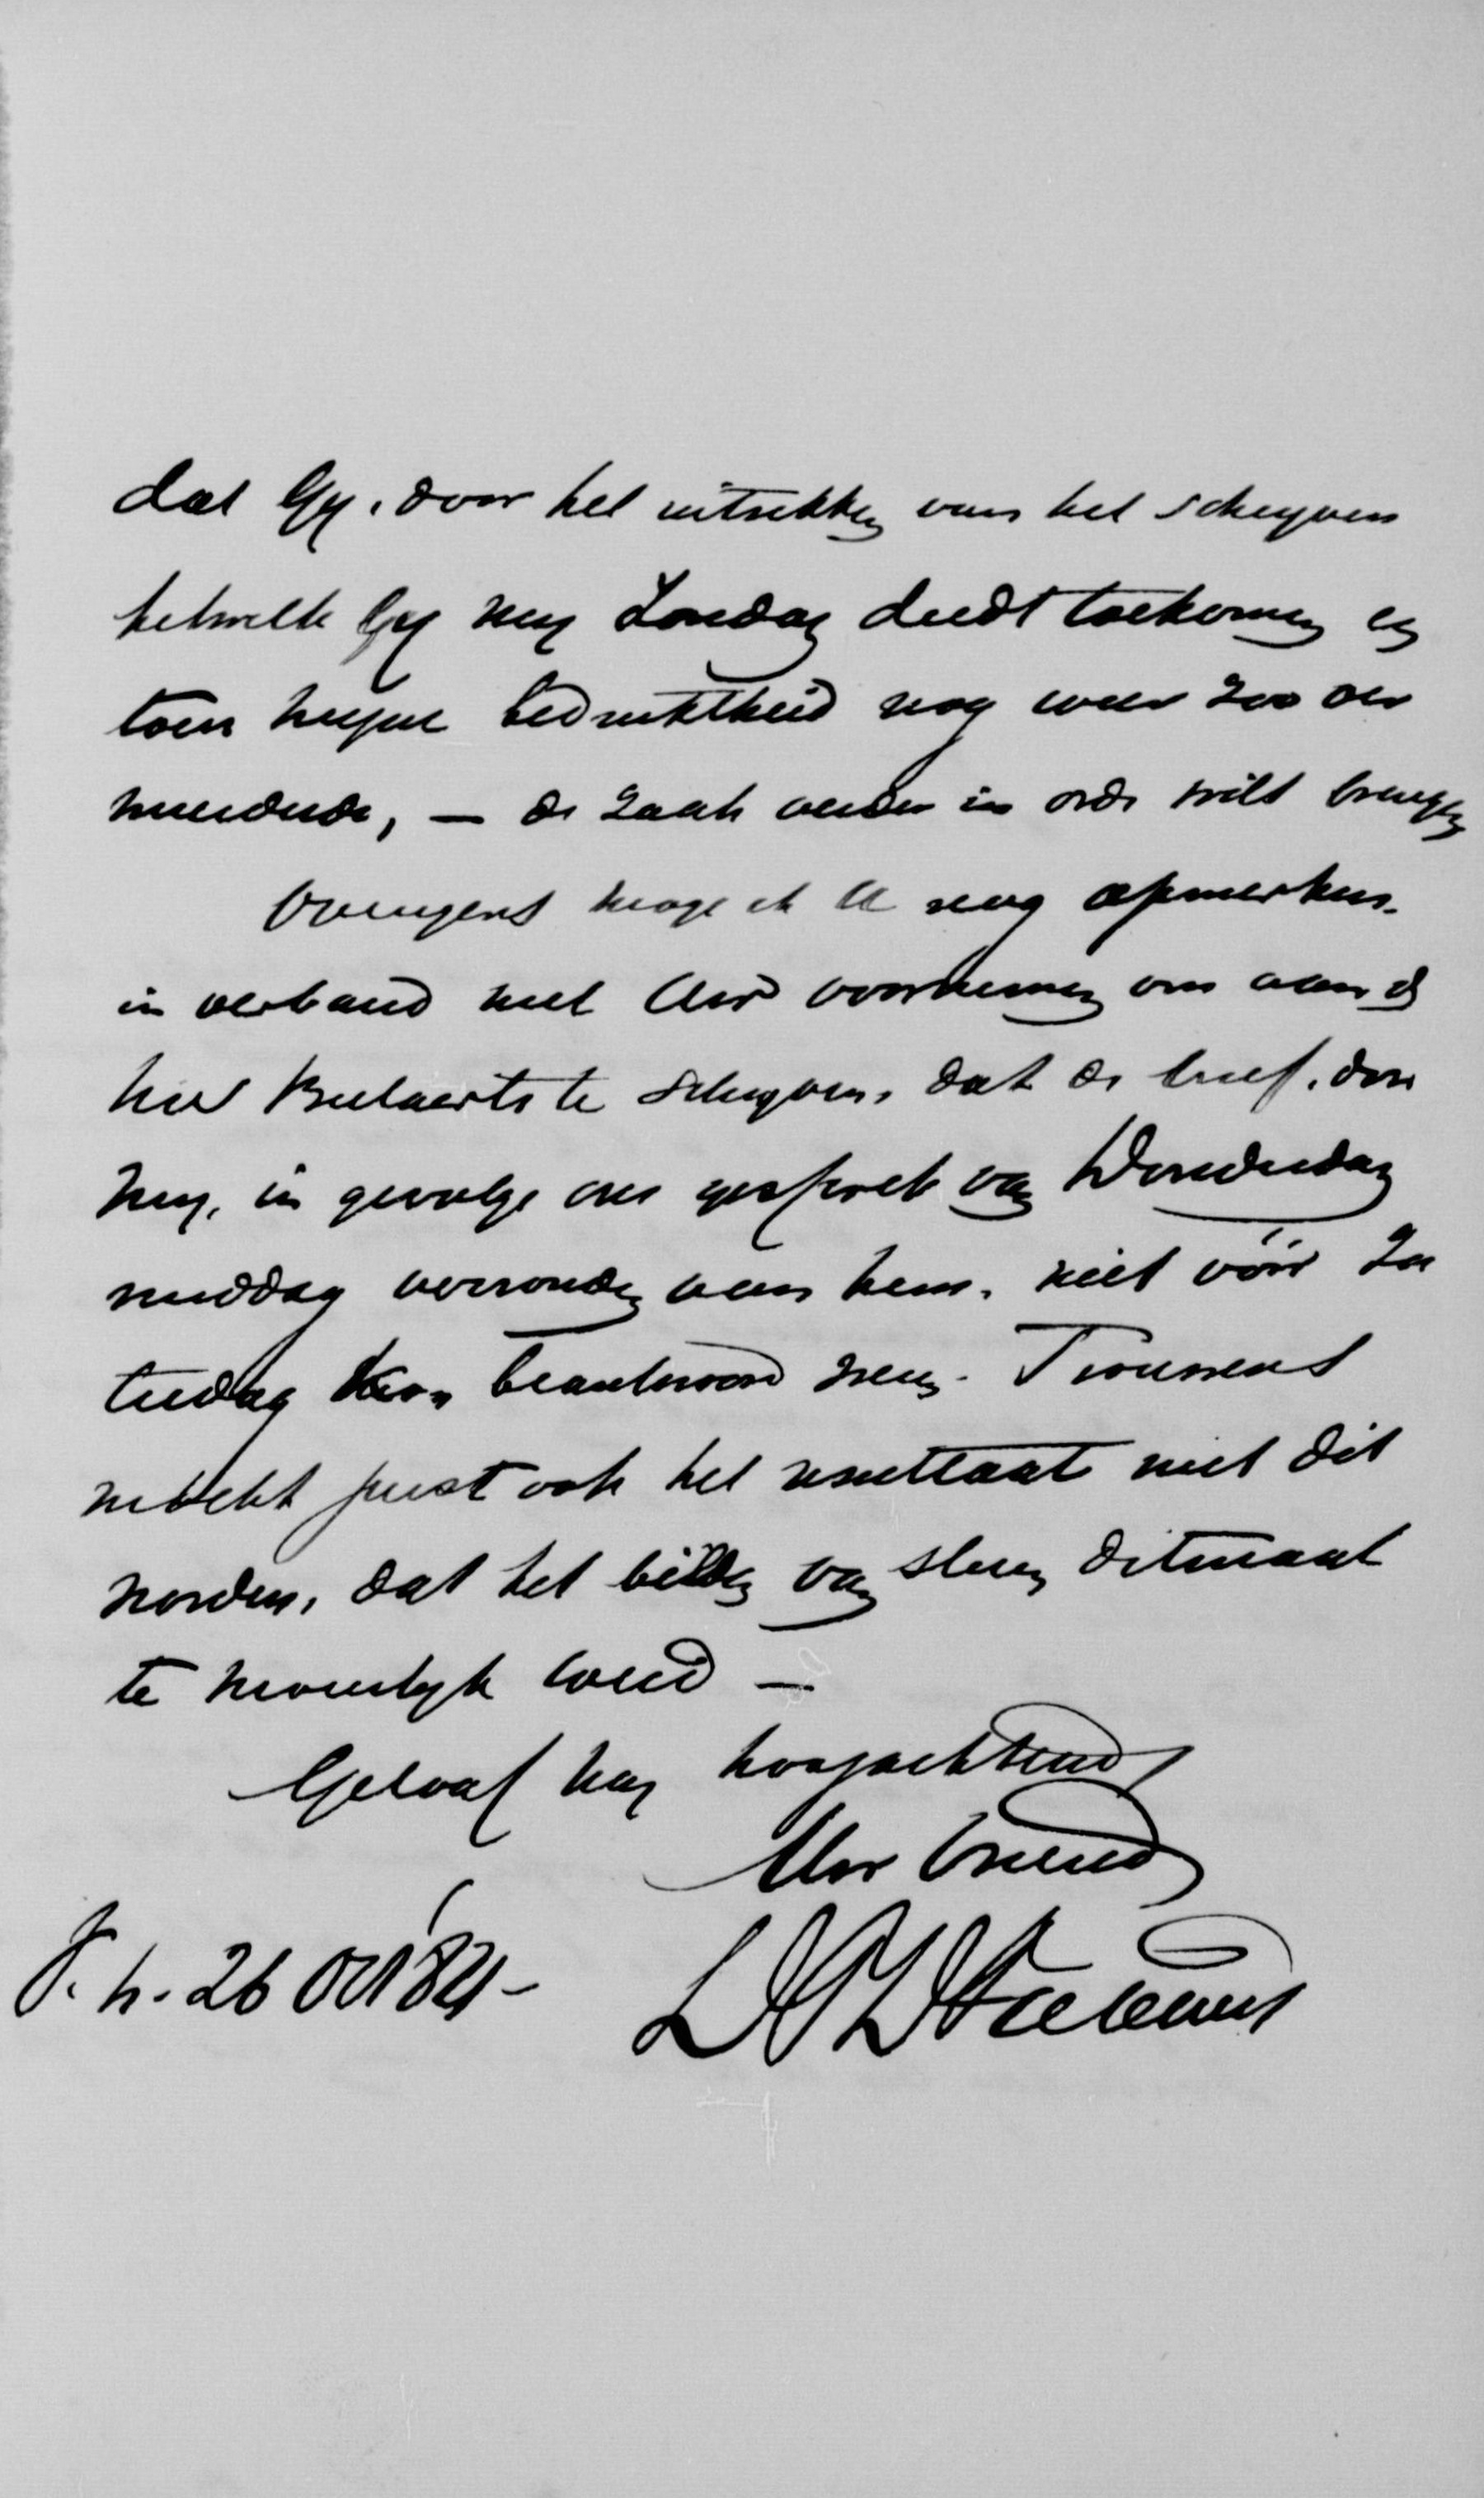 dat Gy, door het intrekken van het schryven
hetwelk Gy my Zondag deedt toekomen en
toen myne bedruktheid nog weer zoo ver
meerderde, — de zaak verder in orde wilt brengen
Overigens moge ik U nog opmerken,
in verband met Uw voornemen om aan de
heer Beelaerts te schryven, dat de brief, door
my, in gevolge ons gesprek van Donderdag
middag verzonden aan hem, niet vóór Za
terdag kon beantwoord zyn. Trouwens
mocht juist ook het resultaat niet dit
worden, dat het bilden van ditmaal
te moeielyk werd —
Geloof my hoogachtend
Uw vriend
26 Oct 84 -